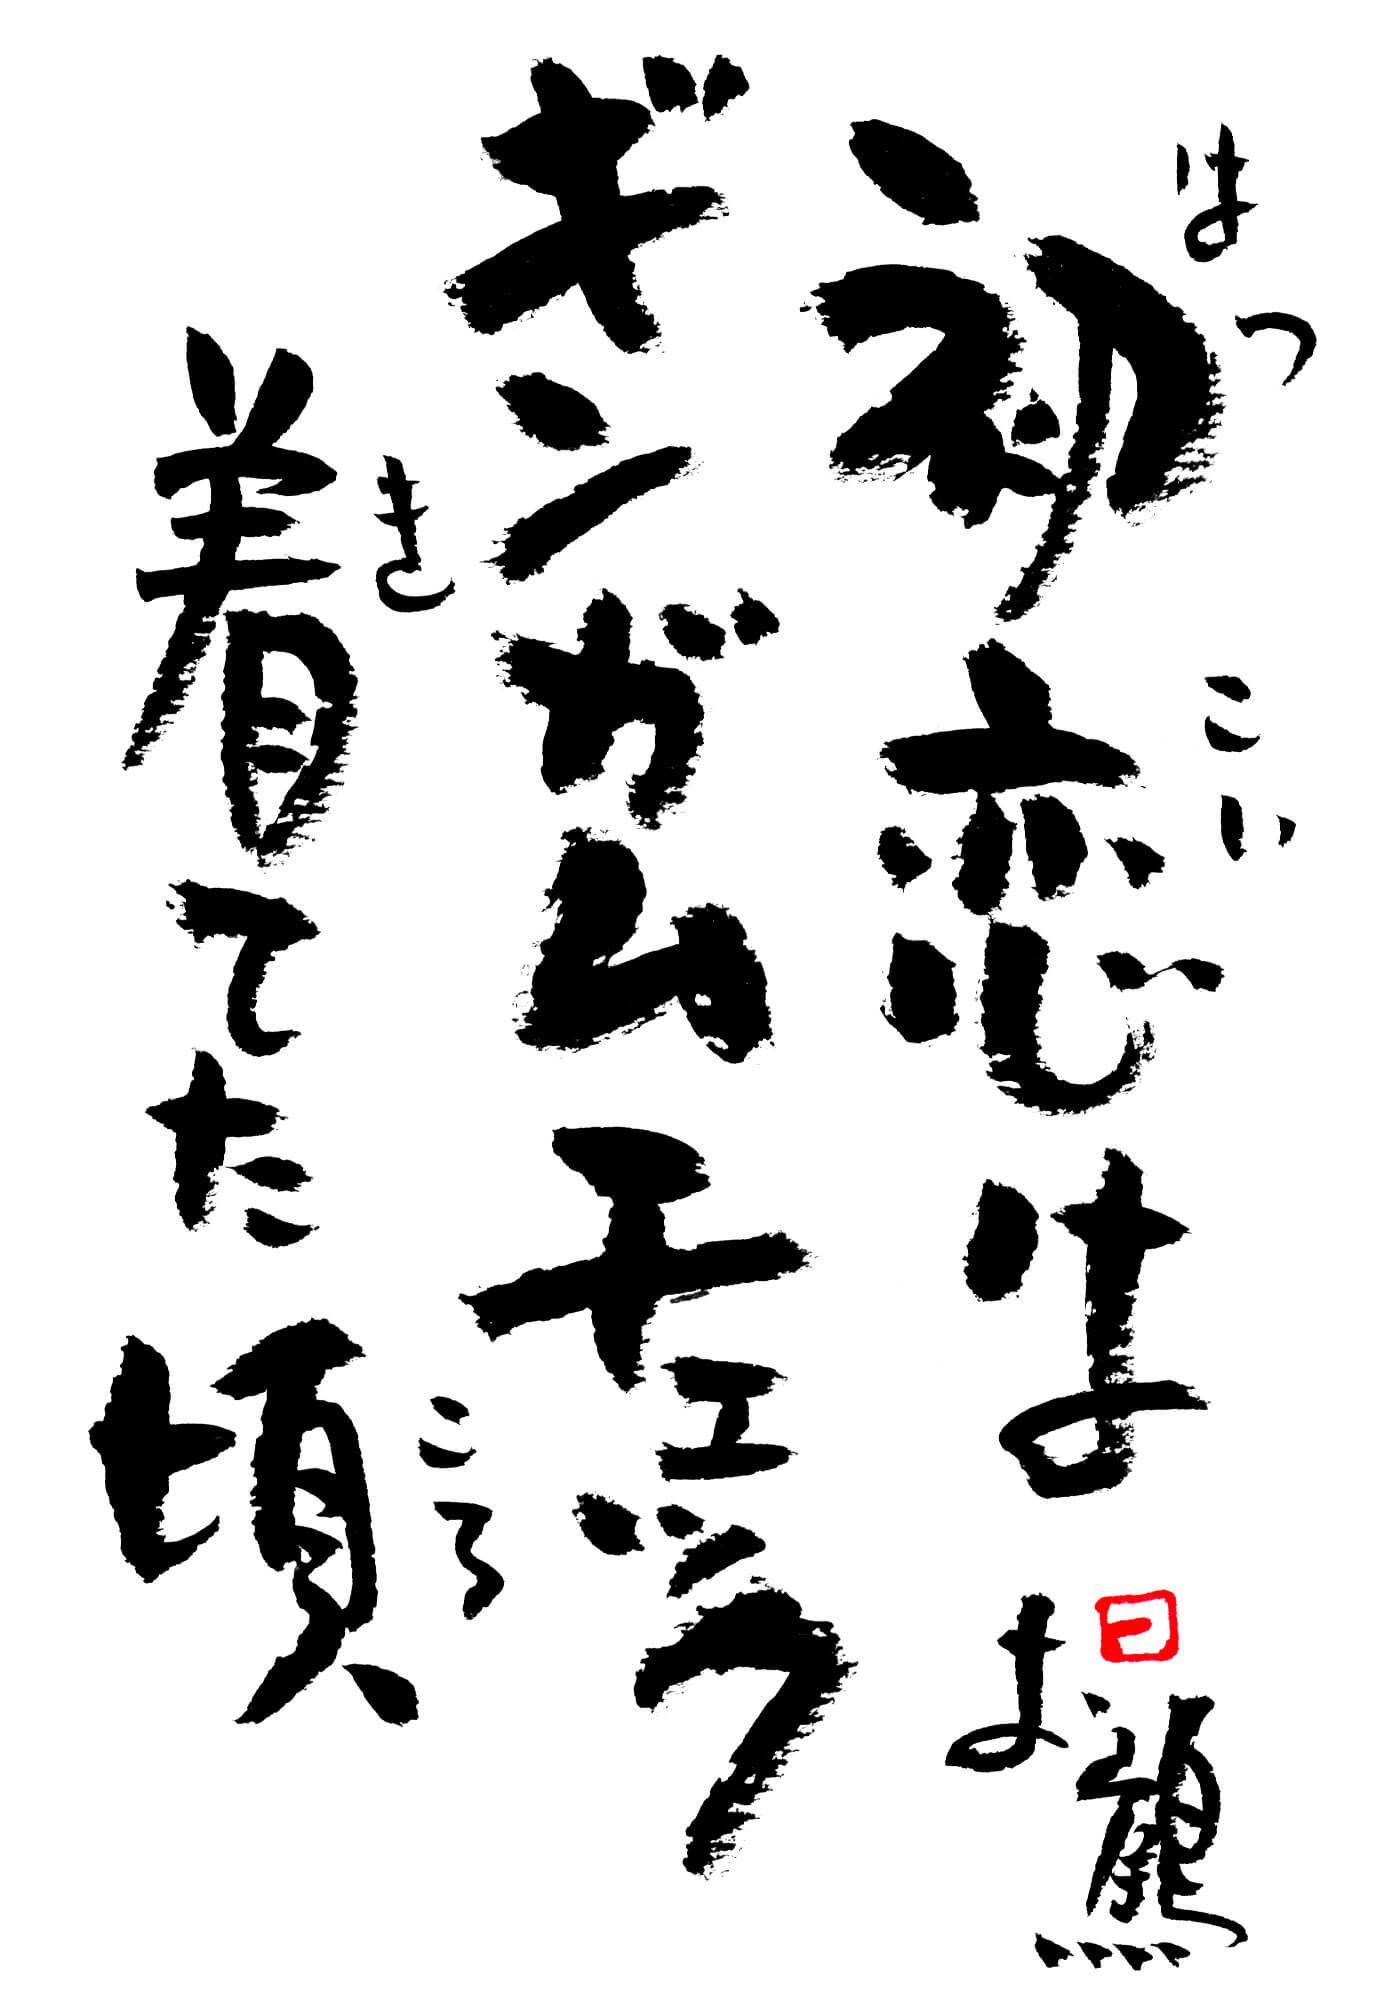 初恋は
はつ
こい
ギンガムチェック
着てた頃
き
ころ
熊
よ